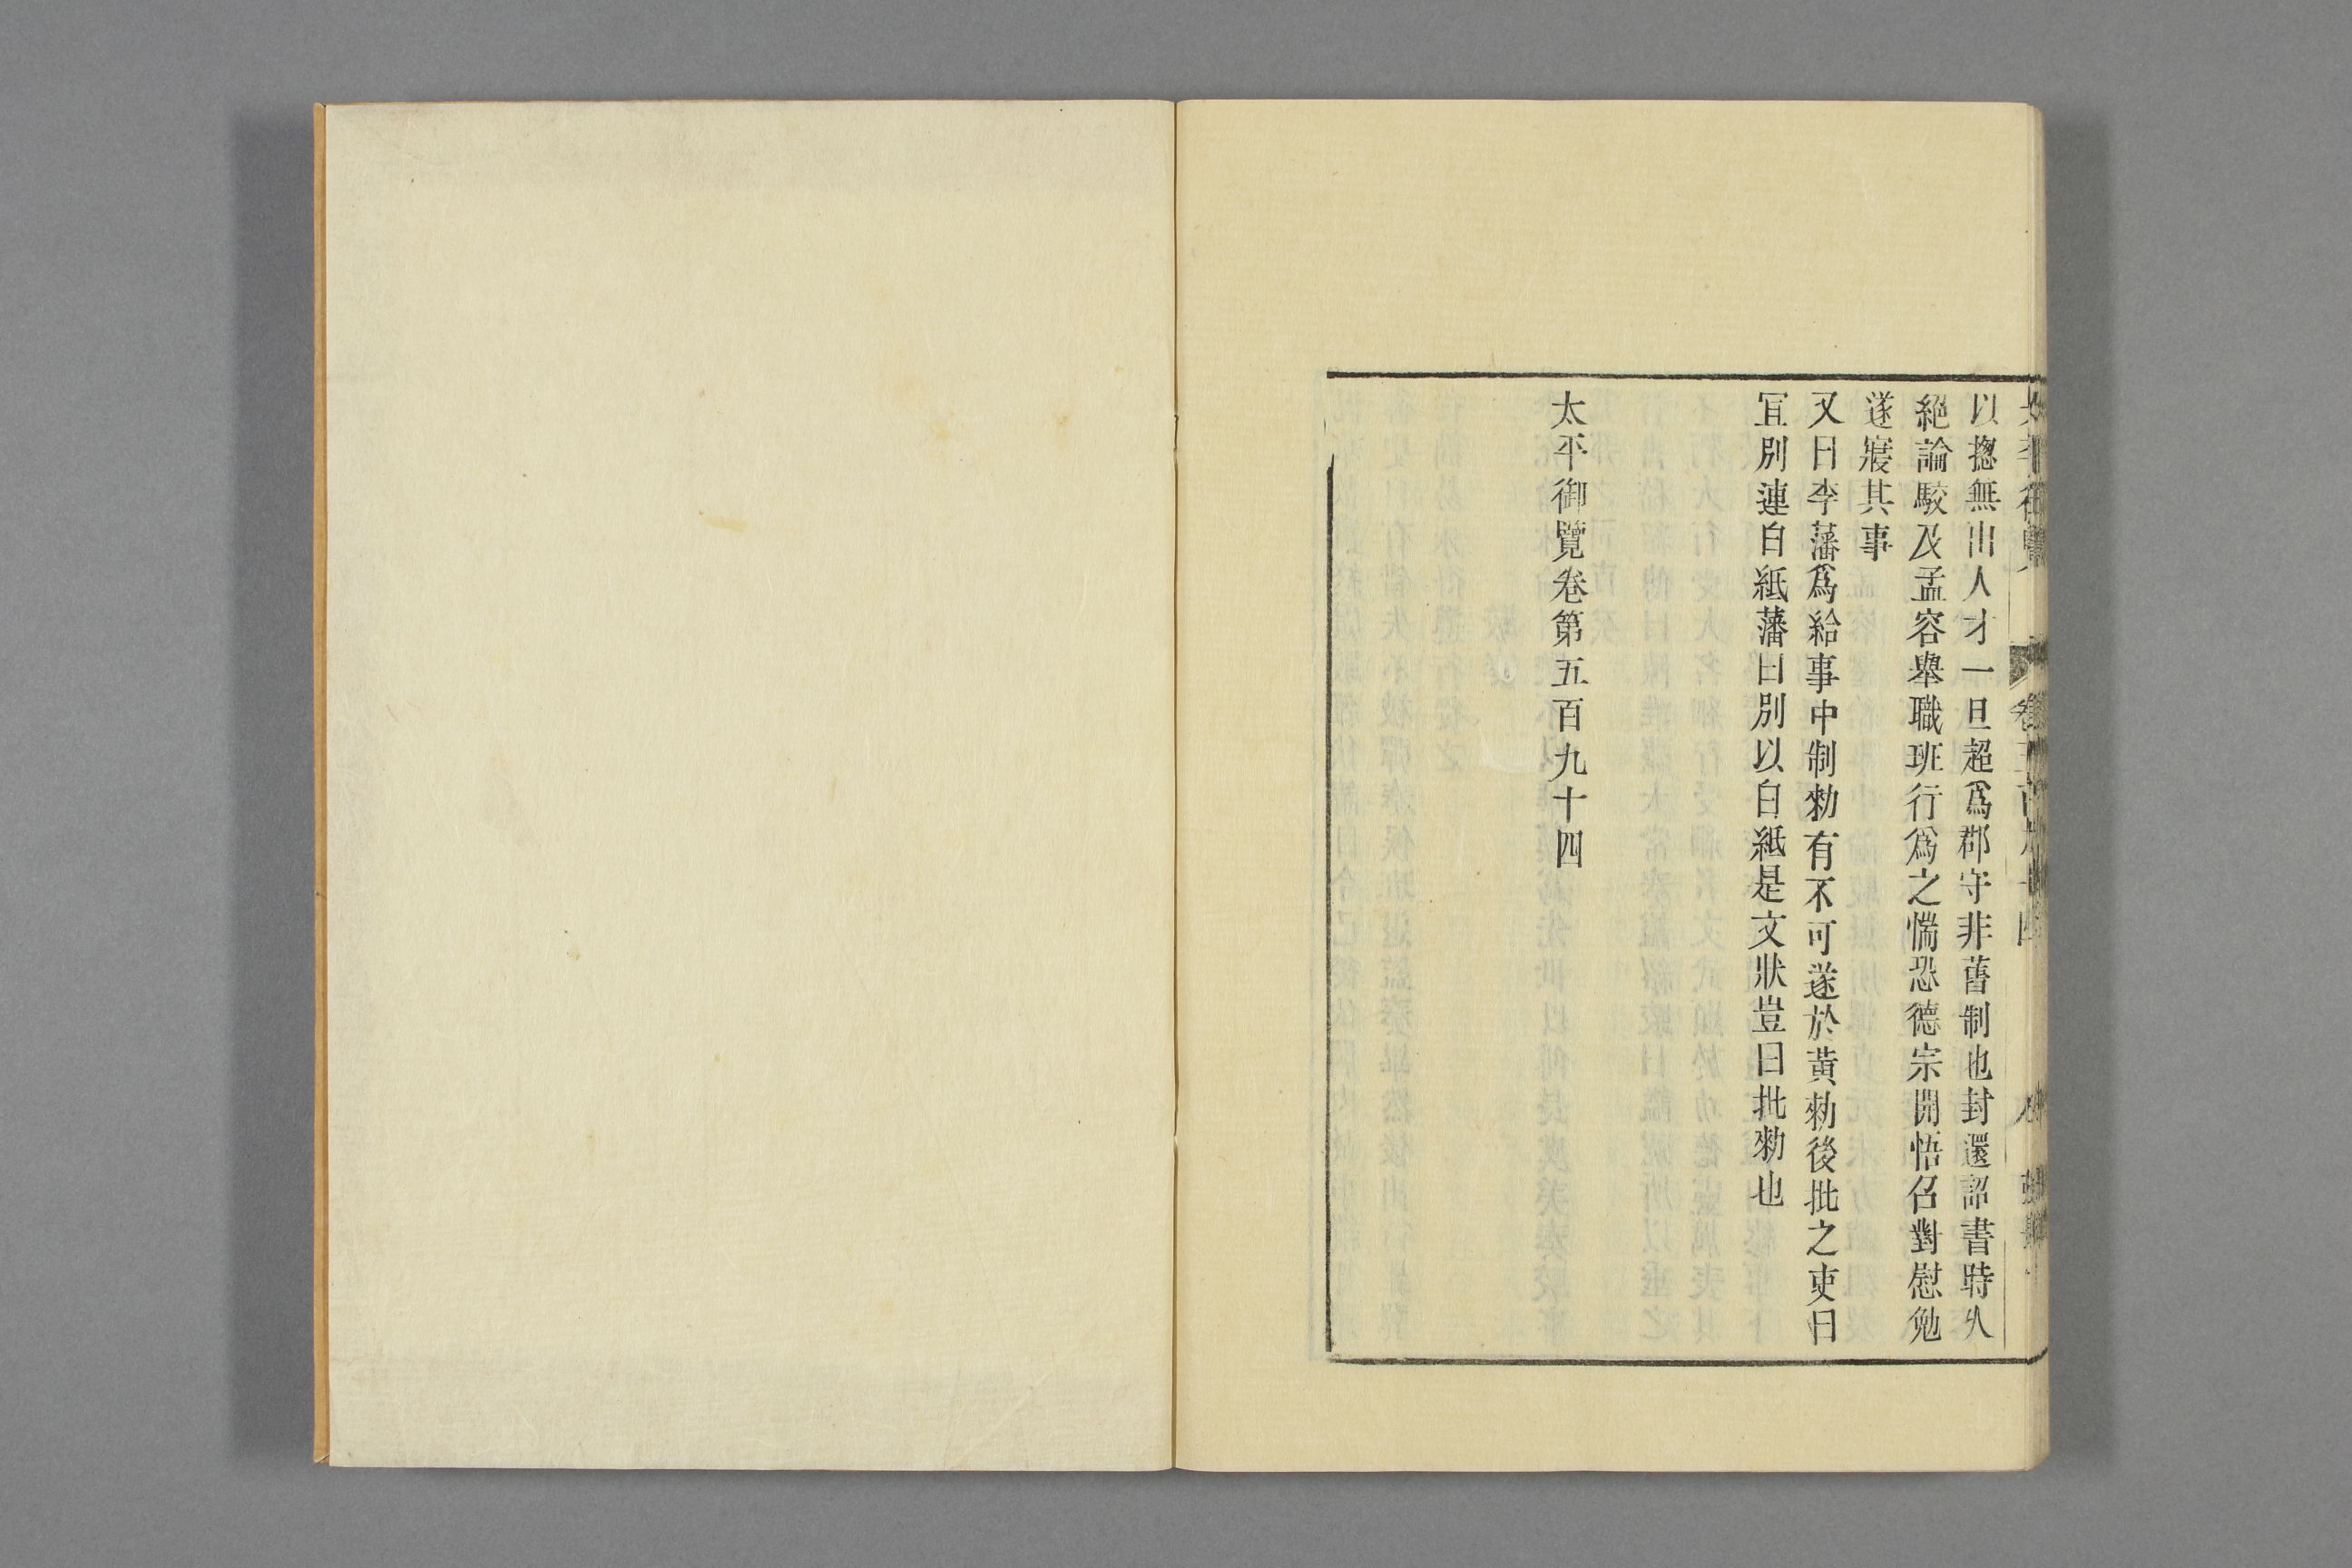 以揔無出人才一旦超爲郡守非舊制也封還詔書時人
絕論駮及孟容舉職班行爲之惴恐德宗開悟召對慰勉
遂寢其事
又曰李藩爲給事中制勑有不可遂於黃勑後批之吏曰
冝別連白紙藩曰別以白紙是文狀豈曰批勑也
太平御覽卷第五百九十四